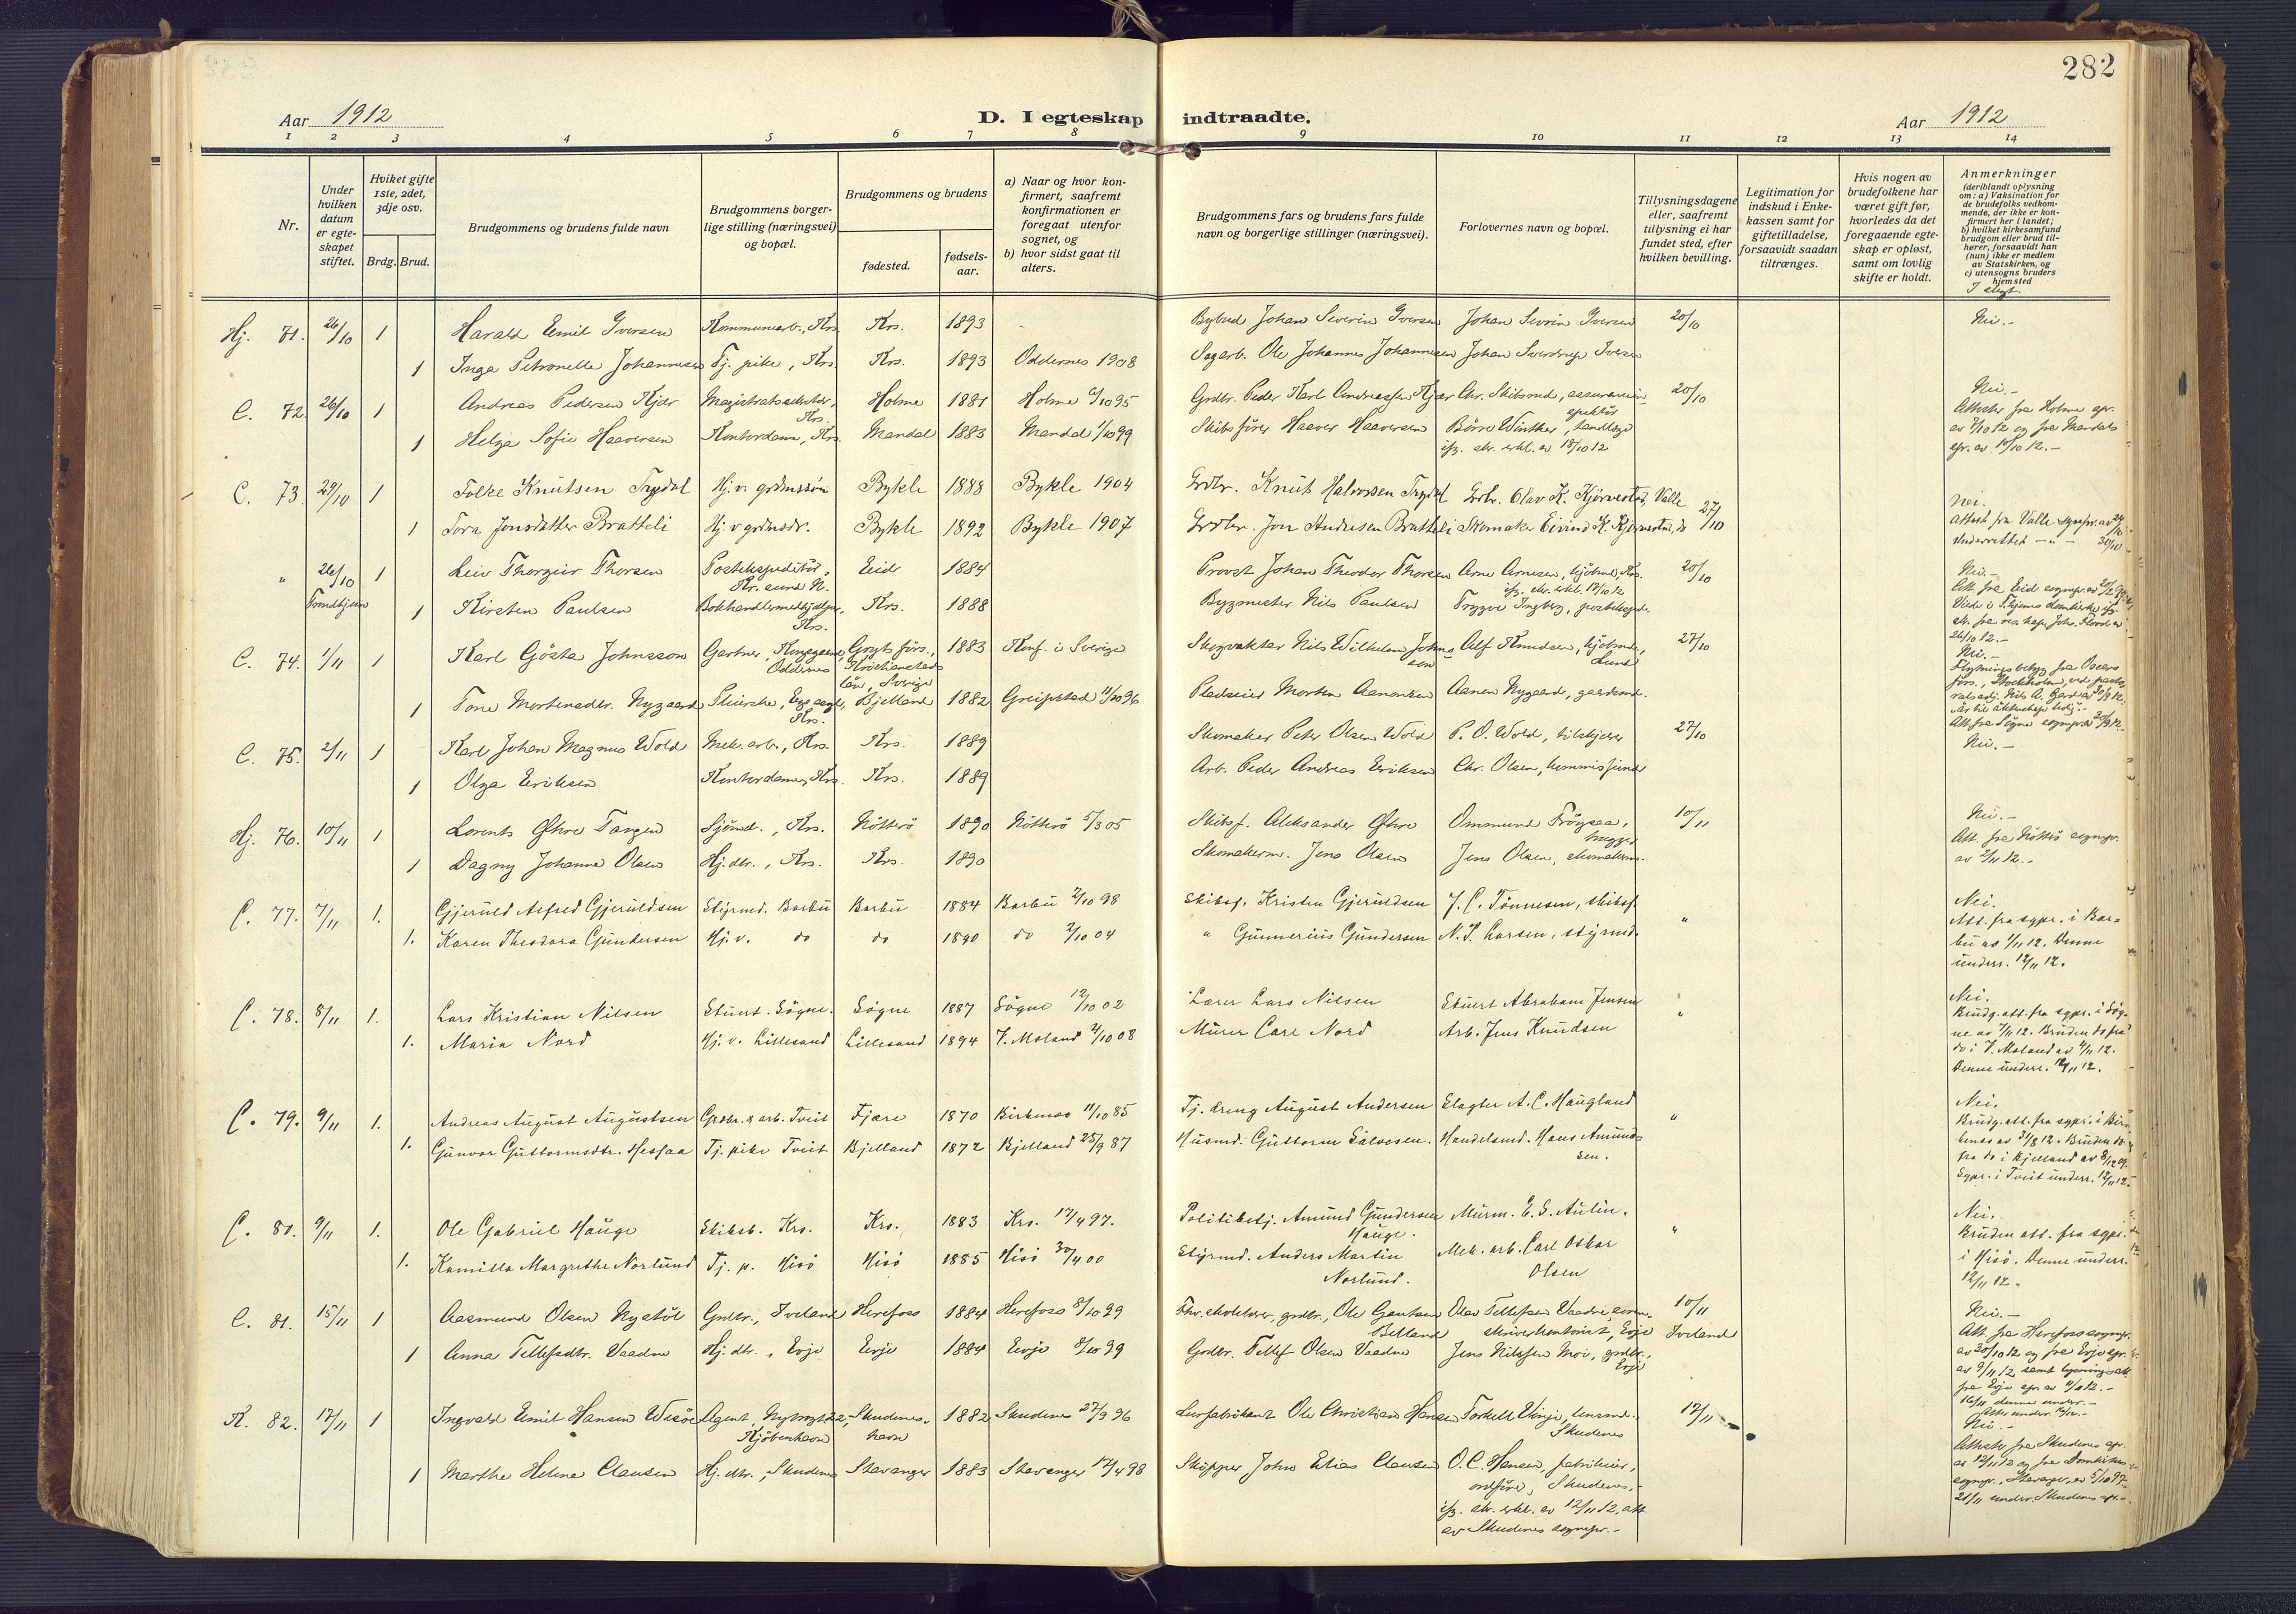 282
Aar 1912
D. I egteskap indtraadte.
Aar 1912
1 2 3 4 5 6 7 8 9 10 11 12 13 14
Nr.
Under hvilken datum er egteskapet stiftet.
Hviket gifte 1ste, 2det, 3dje osv.
Brdg. Brud.
Brudgommens og brudens fulde navn
Brudgommens borgerlige stilling (næringsvei) og bopæl.
Brudgommens og brudens
fødested.
fødselsaar.
a) Naar og hvor konfirmert, saafremt konfirmationen er foregaat utenfor sognet, og
b) hvor sidst gaat til alters.
Brudgommens fars og brudens fars fulde navn og borgerlige stillinger (næringsvei).
Forlovernes navn og bopæl.
Tillysningsdagene eller, saafremt tillysning ei har fundet sted, efter hvilken bevilling.
Legitimation for indskud i Enkekassen samt for giftetilladelse, forsaavidt saadan tiltrænges.
Hvis nogen av brudefolkene har været gift før, hvorledes da det foregaaende egteskap er opløst, samt om lovlig skifte er holdt.
Anmerkninger
(deriblandt oplysning om: a) Vaksination for de brudefolks vedkommende, der ikke er konfirmert her i landet; b) hvilket kirkesamfund brudgom eller brud tilhører, forsaavidt han (hun) ikke er medlem av Statskirken, og c) utensogns bruders hjemsted
I slegt.
Hj. 71. 26/10 1 Harald Emil Iversen Kommunearb., Krs. Krs. 1893 - Bybud Johan Severin Iversen Johan Sevrin Iversen 20/10 Nei.-
1 Inga Petronelle Johannesen Tj. pike, Krs. Krs. 1893 Oddernes 1908 Sagarb. Ole Johannes Johannesen Johan Sverdrup Iversen
C. 72. 26/10 1 Andreas Pedersen Kjær Magistratssekretær, Krs. Holme 1881 Holme 6/10 95 Grdbr. Peder Karl Andreassen Kjær Chr. Skibsrud, assuranceinspektør 20/10 Nei.-
Attester fra Holme spr. av 7/10 12 og fra Mandals spr. av 15/10 12.-
1 Helga Sofie Haaversen Kontordame, Krs. Mandal 1883 Mandal 1/10 99 Skibsfører Haaver Haaversen Børre Winther, tandlæge
ifg. skr. erkl. av 18/10 12
C. 73. 29/10 1 Folke Knutsen Trydal Hj. v. grdmssøn Bykle 1888 Bykle 1904 Grdbr. Knut Halvorsen Trydal Grbr. Olav K. Kjørvestad, Valle 27/10 Nei.
Attest fra Valle sognpr. av 24/10
Underrettet -"- 30/10
1 Tora Jonsdatter Bratteli Hj. v grdmsdr. Bykle 1892 Bykle 1907 Grdbr. Jon Andresen Bratteli Skomaker Eivind K. Kjørvestad, do
" 26/10 Trondhjem 1 Leiv Thorgeir Thorsen Postekspeditør, Kr. sund N. Eid 1884 Provst Johan Theodor Thorsen Arne Arnesen, kjøbmd, Krs. 20/10 Nei.-
ifg. skr. erkl. 17/10 12
1 Kirsten Paulsen Bokhandlermedhjelper, Krs. Krs. 1888 Bygmester Nils Paulsen Trygve Ingberg, postekspd.
C. 74. 1/11 1 Karl Gösta Johnsson Gartner, Kongsgaard, Oddernes Gryts förs., Kristianstads län, Sverige 1883 Konf. i Sverige Skogvaktar Nils Wilhelm Johnsson Alf Knudsen, kjøbmd., Lund 27/10 Nei.-
1 Tone Mortensdr. Nygaard Pleierske, Krs. Bjelland 1882 Greipstad 11/10 96 Pladseier Morten Aanonsen Aanen Nygaard, gaardmd.
C. 75. 2/11 1 Karl Johan Magnus Wold Mek. arb., Krs. Krs. 1889 Skomaker Peter Olsen Wold P. O. Wold, tilskjærer 27/10 Nei.-
1 Olga Eriksen Kontordame, Krs. Krs. 1889 Arb. Peder Andreas Eriksen Chr. Olsen,
Hj. 76. 10/11 1 Lorents Øhre Tangen Sjömd., Krs. Nötterö 1890 Nötterö 5/3 05 Skibsf. Aleksander Øhre Ommund Frøysaa, 10/11 Nei.-
Att. fra Nötterö sognepr. av 2/11 12.-
1 Dagny Johanne Olsen Hj. dtr., Krs. Krs. 1890 Skomakerm. Jens Olsen Jens Olsen, skomakerm.
C. 77. 7/11 1. Gjeruld Alfred Gjeruldsen Styrmd. Barbu Barbu 1884 Barbu 2/10 98 Skibsf. Kristen Gjeruldsen J. C. Tönnesen, skibsf. " Nei.
Att. fra sgpr. i Barbu av 1/11 12. Denne underr. 12/11 12.
1. Karen Theodora Gundersen Hj. v. do do 1890 do 2/10 04 " Gunnerius Gundersen N. P. Larsen, styrmd.
C. 78. 8/11 1. Lars Kristian Nilsen Stuert. Søgne. Søgne 1887 Søgne 12/10 02 Lærer Lars Nilsen Stuert Abraham Jensen " Nei.
Brudg. att. fra sgpr. i Søgne av 7/11 12. Bruden do fra do i V. Moland av 4/11 12. Denne underr. 12/11 12.
1. Maria Nord Hj. v. Lillesand Lillesand 1894 V. Moland 4/10 08 Murer Carl Nord Arb. Jens Knudsen
C. 79. 9/11 1. Andreas August Augustsen Grdbr. & arb. Tveit Fjære 1870 Birkenes 11/10 85 Tj. dreng August Andersen Slagter A. C. Haugland " Nei.
Brudg. att. fra sgpr. i Birkenes av 31/8 12. Bruden do fra do i Bjelland av 8/12 09. Sgpr. i Tveit underr. 12/11 12.
1. Gunvor Guttormsdtr. Hessaa Tj. pike Tveit Bjelland 1872 Bjelland 25/9 87 Husmd. Guttorm Salvesen. Handelsmd. Hans Amundsen.
C. 80. 9/11 1. Ole Gabriel Hauge Skibsb. Krs. Krs. 1883 Krs. 17/4 97. Politibetj. Amund Gundersen Hauge. Murm. E. S. Aulin. " Nei.
Bruden att. fra sgpr. i Hisö. Denne underr. 12/11 12.
1. Kamilla Margrethe Norlund Tj. p. Hisö Hisö 1885 Hisö 30/4 00 Styrmd. Anders Martin Norlund. Mek. arb. Carl Oskar Olsen
C. 81. 15/11 1 Aasmund Olsen Nystöl Grdbr., Iveland Herefoss 1884 Herefoss 8/10 99 Fhv. skoleholder, grdbr., Ole Gautsen Belland Olav Tellefsen Vaadne, Evje 10/11 Iveland Nei.-
Att. fra Herefoss sognpr. av 30/10 12 og fra Evje spr. av 9/11 12
1 Anna Tellefsdtr. Vaadne Hj. dtr., Evje Evje 1884 Evje 8/10 99 Grdbr. Tellef Olsen Vaadne Jens Nilssen Moi, grdbr., Evje
K. 82. 17/11 1 Ingvald Emil Hansen Agent, Kjøbenhavn Skudeneshavn 1882 Skudenes 27/9 96 Ole Christian Hansen Torkell Vinje, Skudenes 17/11 Nei.-
1 Marthe Helene Clausen Hj. dtr., Skudenes Stavanger 1883 Stavanger 17/4 98 Skipper John Elias Clausen O. C. Hansen, ordfører, Skudenes,
ifg. skr. erkl. av 12/11 12, att. av Skudenes sognepr.-